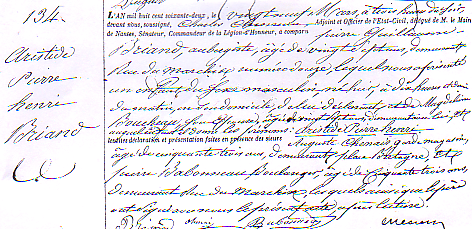 134.
Aristide
Pierre
henri
Briand
L'AN mil huit cent soixante-deux, le vingt neuf Mars, a trois heures du soir,
devant nous, soussigné, Adjoint et Officier de l'Etat-Civil, délégué de M. le Maire
de Nantes, Sénateur, Commandeur de la Légion-d'Honneur, a comparu pierre Guillaume
Briand aubergiste, âgé de vingt sept ans, demeurant
rue du marchix, numéro douze, lequel nous a présenté
un enfant du sexe masculin, né hier, à dix heures et demie
du matin, en sa demeure, de lui déclarant, et de Magdeleine
Boucheau, sa
auquel il a donné les prénoms: Aristide Pierre henri
lesdites déclaration et présentation faites en présence des sieurs Auguste
âgé de cinquante trois ans, demeurant place Bretagne, et
pierre Babonneau Boulanger, âgé de cinquante trois ans,
demeurant rue du Marchix, lesquels ainsi que le père
ont signé avec nous le présent acte, après lecture.
Briand Babonneau